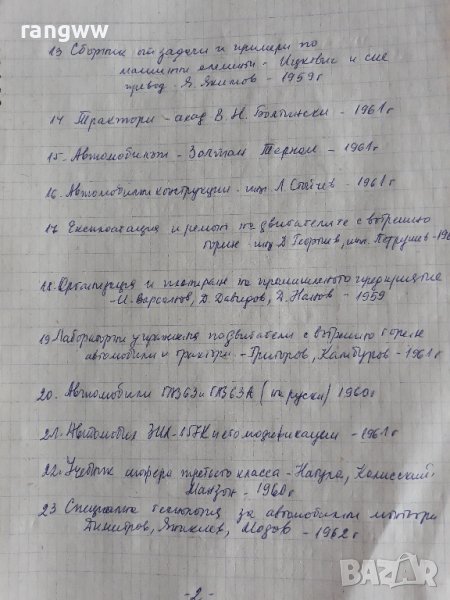 rangww
13 Сборник от задачи и примери по
машинни елементи - Ицкевич и сие
превод. Я. Якимов - 1959г
14 Трактори - акад В. Н. Болтински - 1961г
15. Автомобилът - Золтан Терплан - 1961г.
16. Автомобилни конструкции - инж Л. Стайчев - 1961г
17 Експлоатация и ремонт на двигателите с вътрешно
горене - инж Д Георгиев, инж.
18. Организация и планиране на промишленото предприятие
- И. Варсанов, Д. Давидов, Д. - 1959
19 Лабораторни упражнения по двигатели с вътрешно горене
автомобили и трактори. - Григоров, Камбуров - 1961г
20. Автомобили ГАЗ 63 и ГАЗ 63А (на руски) 1960г
21. Автомобил ЗИЛ-157К и его модификации - 1961г
22. Учебник шофера третьего класса - Калисский,
Манзон - 1960г
23 Специална технология за автомобилни монтьори
Димитров, - 1962г
-2-
BAZAR